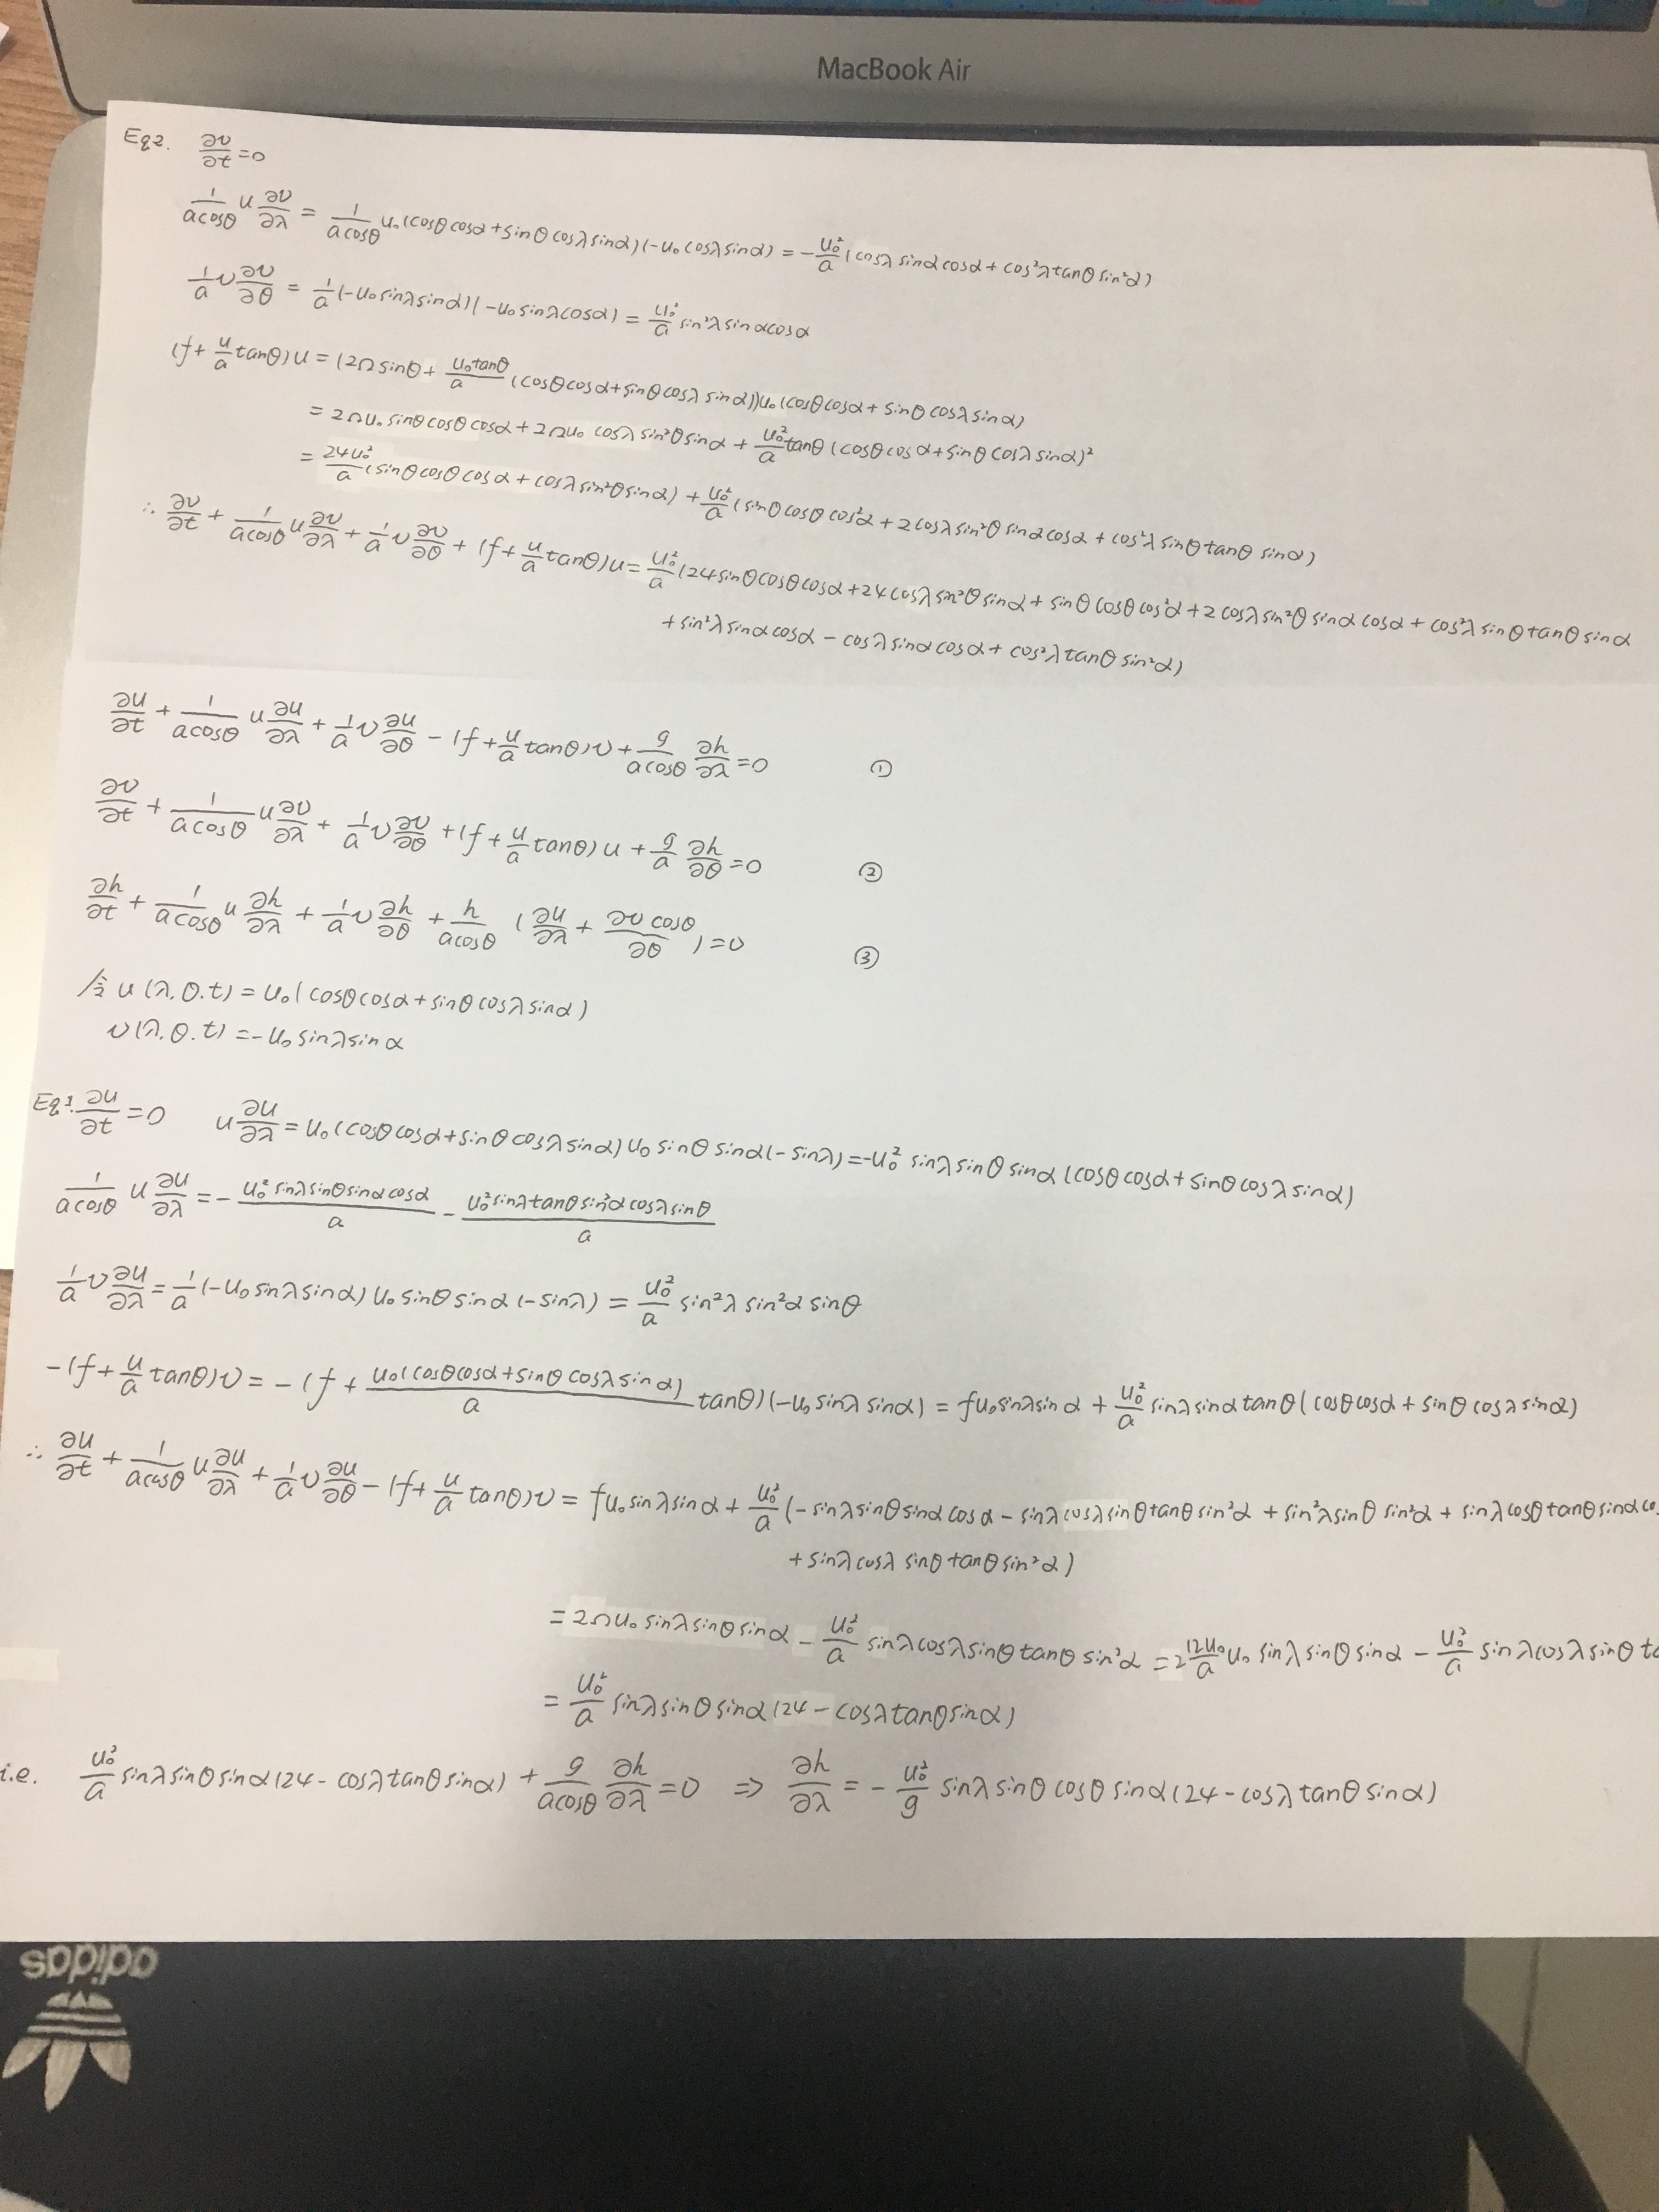 MacBook Air
Eq2. ∂v/∂t = 0
1/(a cosθ) u ∂v/∂λ = 1/(a cosθ) u₀(cosθ cosα + sinθ cosλ sinα)(-u₀ cosλ sinα) = - u₀²/a (cosλ sinα cosα + cos²λ tanθ sin²α)
1/a v ∂v/∂θ = 1/a (-u₀ sinλ sinα)(-u₀ sinλ cosα) = u₀²/a sin²λ sinα cosα
(f + u/a tanθ) u = (2Ω sinθ + u₀ tanθ/a (cosθ cosα + sinθ cosλ sinα)) u₀ (cosθ cosα + sinθ cosλ sinα)
= 2Ω u₀ sinθ cosθ cosα + 2Ω u₀ cosλ sin²θ sinα + u₀²/a tanθ (cosθ cosα + sinθ cosλ sinα)²
= 24u₀²/a (sinθ cosθ cosα + cosλ sin²θ sinα) + u₀²/a (sinθ cosθ cos²α + 2cosλ sin²θ sinα cosα + cos²λ sinθ tanθ sinα)
∴ ∂v/∂t + 1/(a cosθ) u ∂v/∂λ + 1/a v ∂v/∂θ + (f + u/a tanθ) u = u₀²/a (24 sinθ cosθ cosα + 24 cosλ sin²θ sinα + sinθ cosθ cos²α + 2 cosλ sin²θ sinα cosα + cos²λ sinθ tanθ sinα
+ sin²λ sinα cosα - cosλ sinα cosα + cos²λ tanθ sin²α)
∂u/∂t + 1/(a cosθ) u ∂u/∂λ + 1/a v ∂u/∂θ - (f + u/a tanθ) v + g/(a cosθ) ∂h/∂λ = 0 ①
∂v/∂t + 1/(a cosθ) u ∂v/∂λ + 1/a v ∂v/∂θ + (f + u/a tanθ) u + g/a ∂h/∂θ = 0 ②
∂h/∂t + 1/(a cosθ) u ∂h/∂λ + 1/a v ∂h/∂θ + h/(a cosθ) (∂u/∂λ + ∂v cosθ/∂θ) = 0 ③
令 u(λ.θ.t) = u₀(cosθ cosα + sinθ cosλ sinα)
v(λ.θ.t) = -u₀ sinλ sinα
Eq1. ∂u/∂t = 0 u ∂u/∂λ = u₀(cosθ cosα + sinθ cosλ sinα) u₀ sinθ sinα(-sinλ) = -u₀² sinλ sinθ sinα (cosθ cosα + sinθ cosλ sinα)
1/(a cosθ) u ∂u/∂λ = - u₀² sinλ sinθ sinα cosα/a - u₀² sinλ tanθ sin²α cosλ sinθ/a
1/a v ∂u/∂λ = 1/a (-u₀ sinλ sinα) u₀ sinθ sinα (-sinλ) = u₀²/a sin²λ sin²α sinθ
-(f + u/a tanθ) v = -(f + u₀(cosθ cosα + sinθ cosλ sinα)/a tanθ)(-u₀ sinλ sinα) = f u₀ sinλ sinα + u₀²/a sinλ sinα tanθ (cosθ cosα + sinθ cosλ sinα)
∴ ∂u/∂t + 1/(a cosθ) u ∂u/∂λ + 1/a v ∂u/∂θ - (f + u/a tanθ) v = f u₀ sinλ sinα + u₀²/a (-sinλ sinθ sinα cosα - sinλ cosλ sinθ tanθ sin²α + sin²λ sinθ sin²α + sinλ cosθ tanθ sinα co
+ sinλ cosλ sinθ tanθ sin²α)
= 2Ω u₀ sinλ sinθ sinα - u₀²/a sinλ cosλ sinθ tanθ sin²α = 2 12u₀/a u₀ sinλ sinθ sinα - u₀²/a sinλ cosλ sinθ ta
= u₀²/a sinλ sinθ sinα (24 - cosλ tanθ sinα)
i.e. u₀²/a sinλ sinθ sinα (24 - cosλ tanθ sinα) + g/(a cosθ) ∂h/∂λ = 0 ⇒ ∂h/∂λ = - u₀²/g sinλ sinθ cosθ sinα (24 - cosλ tanθ sinα)
adidas